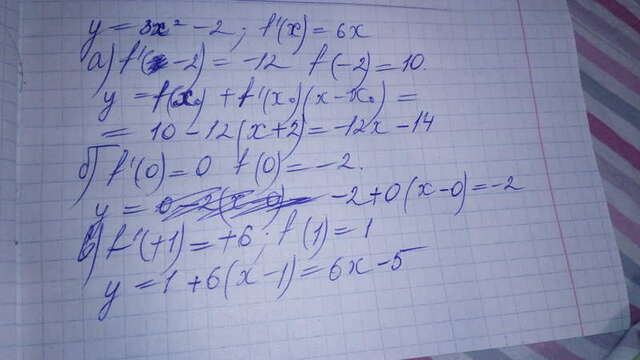 y = 3x² - 2 ; f'(x) = 6x
а) f'(-2) = -12 f(-2) = 10.
y = f(x₀) + f'(x₀)(x - x₀) =
= 10 - 12(x+2) = -12x - 14
б) f'(0) = 0 f(0) = -2.
y = -2 + 0(x-0) = -2
в) f'(+1) = +6 ; f(1) = 1
y = 1 + 6(x-1) = 6x - 5